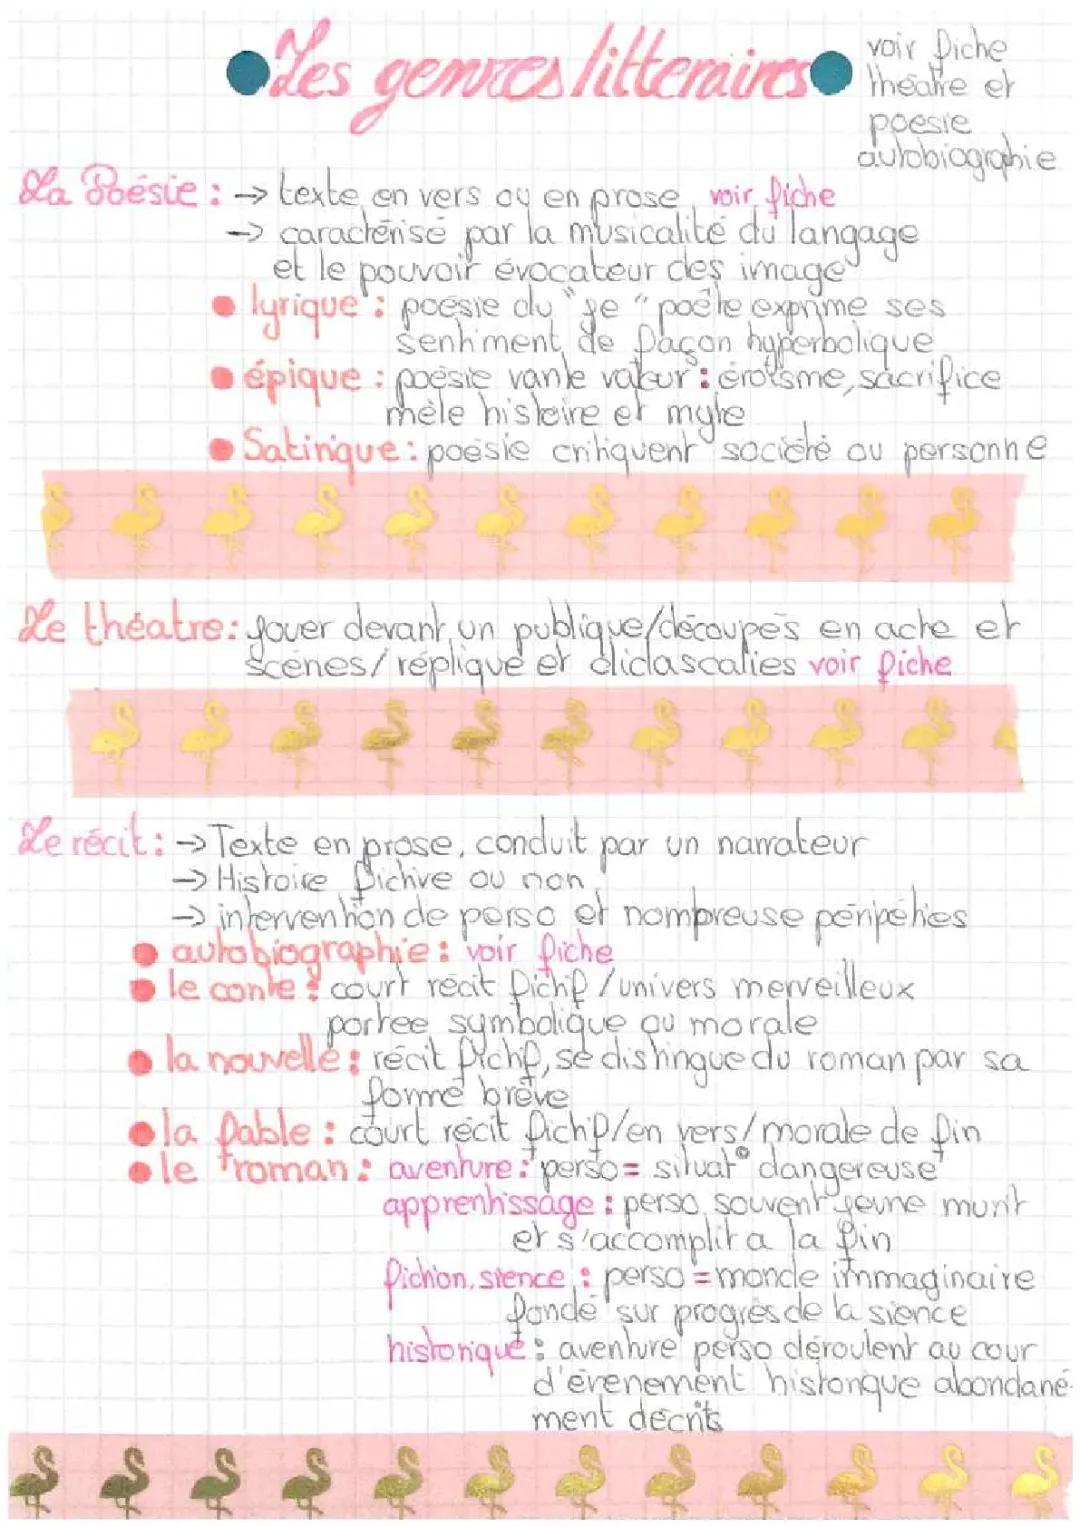 Les genres litteraires
voir fiche
théatre et
poesie
autobiographie
La Poésie : → texte en vers ou en prose voir fiche
→ caractérisé par la musicalité du langage
et le pouvoir évocateur des image
• lyrique : poésie du "je" poète exprime ses
sentiment de façon hyperbolique
• épique : poésie vante valeur : éroïsme, sacrifice
mèle histoire et myte
• Satirique : poésie critiquent société ou personne
Le théatre : jouer devant un publique/découpés en acte et
scènes/ réplique et didascalies voir fiche
Le récit : → Texte en prose, conduit par un narrateur
→ Histoire fictive ou non
→ intervention de perso et nombreuse péripéties
• autobiographie : voir fiche
• le conte : court récit fictif / univers merveilleux
portee symbolique ou morale
• la nouvelle : récit fictif, se distingue du roman par sa
forme brève
• la fable : court récit fictif/en vers/ morale de fin
• le roman : aventure : perso = situat° dangereuse
apprentissage : perso souvent jeune murit
et s'accomplit a la fin
fiction, sience : perso = monde immaginaire
fondé sur progrès de la sience
historique : aventure perso déroulent au cour
d'évenement historique abondané-
ment décrits